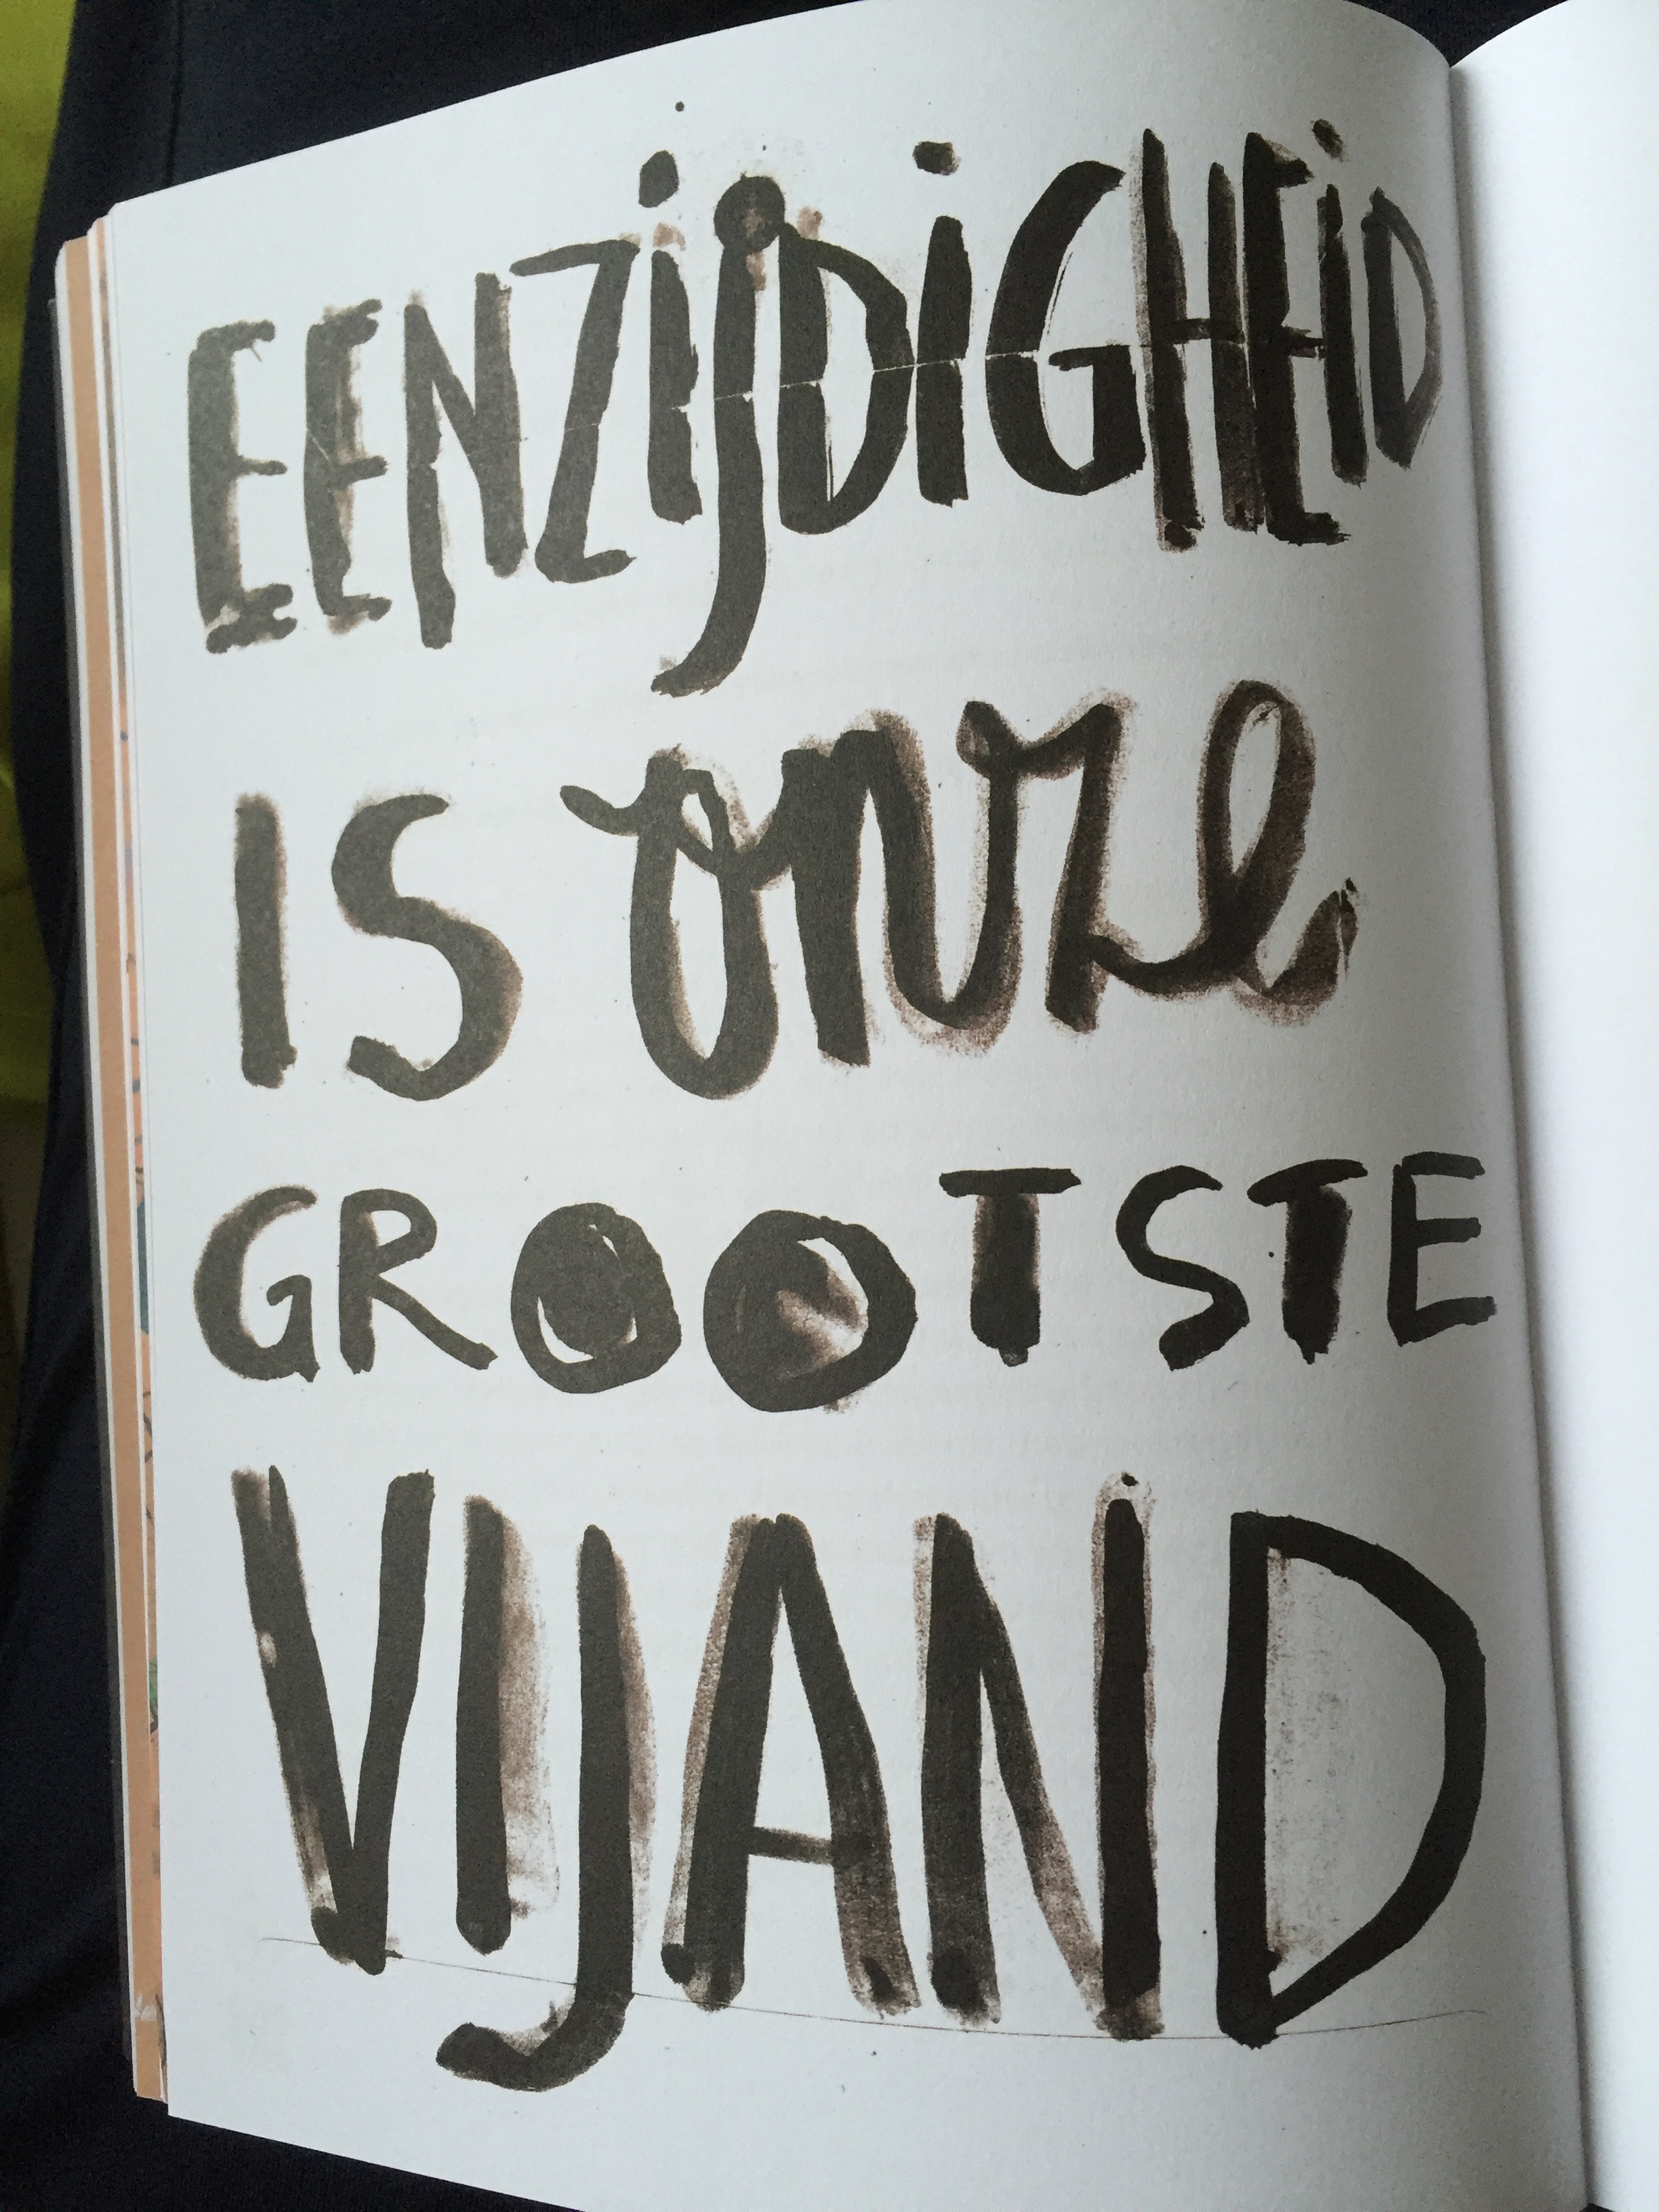 EENZIJDIGHEID
IS onze
GROOTSTE
VIJAND